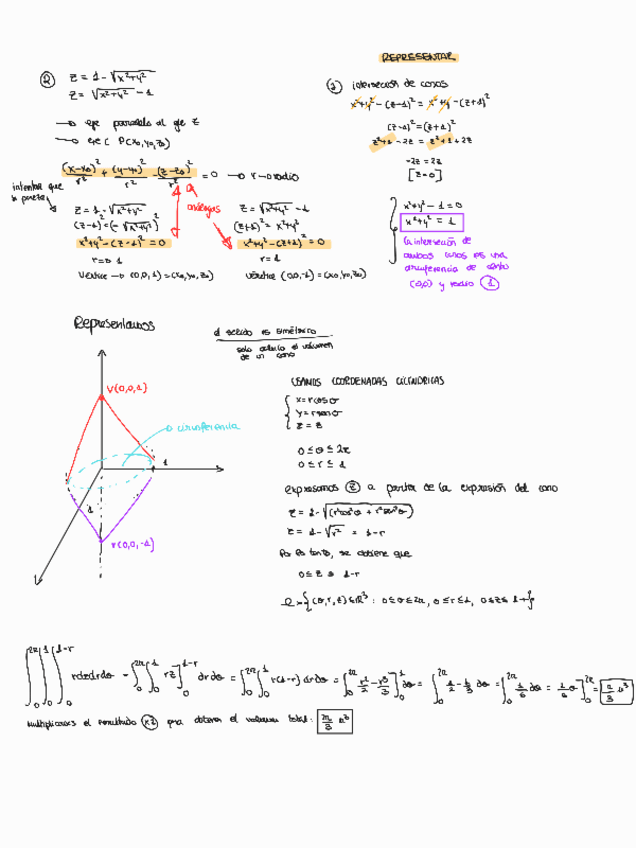 REPRESENTAR
② z = 1 - √x²+y²
z = √x²+y² - 1
→ eje paralelo al eje z
→ eje ( P(x₀,y₀,z₀)
(x-x₀)²/r² + (y-y₀)²/r² - (z-z₀)²/r² = 0 → r → radio
intentar que
se parezca
análogas
z = 1 - √x²+y²
(z-1)² = (-√x²+y²)²
x²+y² - (z-1)² = 0
r = 1
vértice → (0,0,1) = (x₀,y₀,z₀)
z = √x²+y² - 1
(z+1)² = x²+y²
x²+y² - (z+1)² = 0
r = 1
vértice (0,0,-1) = (x₀,y₀,z₀)
① intersección de conos
x²+y² - (z-1)² = x²+y² - (z+1)²
(z-1)² = (z+1)²
z²+1 - 2z = z²+1 + 2z
-2z = 2z
[z=0]
x²+y² - 1 = 0
x²+y² = 1
La intersección de
ambos conos es una
circunferencia de centro
(0,0) y radio ①
Representamos
V(0,0,1)
circunferencia
1
1
V(0,0,-1)
el sólido es simétrico
solo calculo el volumen
de un cono
USAMOS COORDENADAS CILÍNDRICAS
x = r cos θ
y = r sen θ
z = z
0 ≤ θ ≤ 2π
0 ≤ r ≤ 1
expresamos ⓩ a partir de la expresión del cono
z = 1 - √(r²cos²θ + r²sen²θ)
z = 1 - √r² = 1 - r
Por lo tanto, se obtiene que
0 ≤ z ≤ 1-r
{(θ,r,z) ∈ ℝ³ : 0 ≤ θ ≤ 2π, 0 ≤ r ≤ 1, 0 ≤ z ≤ 1-r}
∫₀^2π ∫₀^1 ∫₀^1-r r dz dr dθ = ∫₀^2π ∫₀^1 rz]₀^1-r dr dθ = ∫₀^2π ∫₀^1 r(1-r) dr dθ = ∫₀^2π r²/2 - r³/3]₀^1 dθ = ∫₀^2π 1/2 - 1/3 dθ = ∫₀^2π 1/6 dθ = 1/6 θ]₀^2π = π/3 u³
Multiplicamos el resultado ×2 para obtener el volumen total: 2π/3 u³